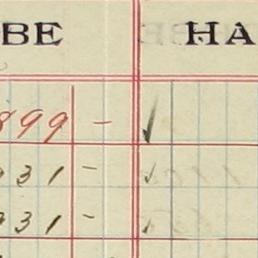 BE HA
899 -
931 -
931 -